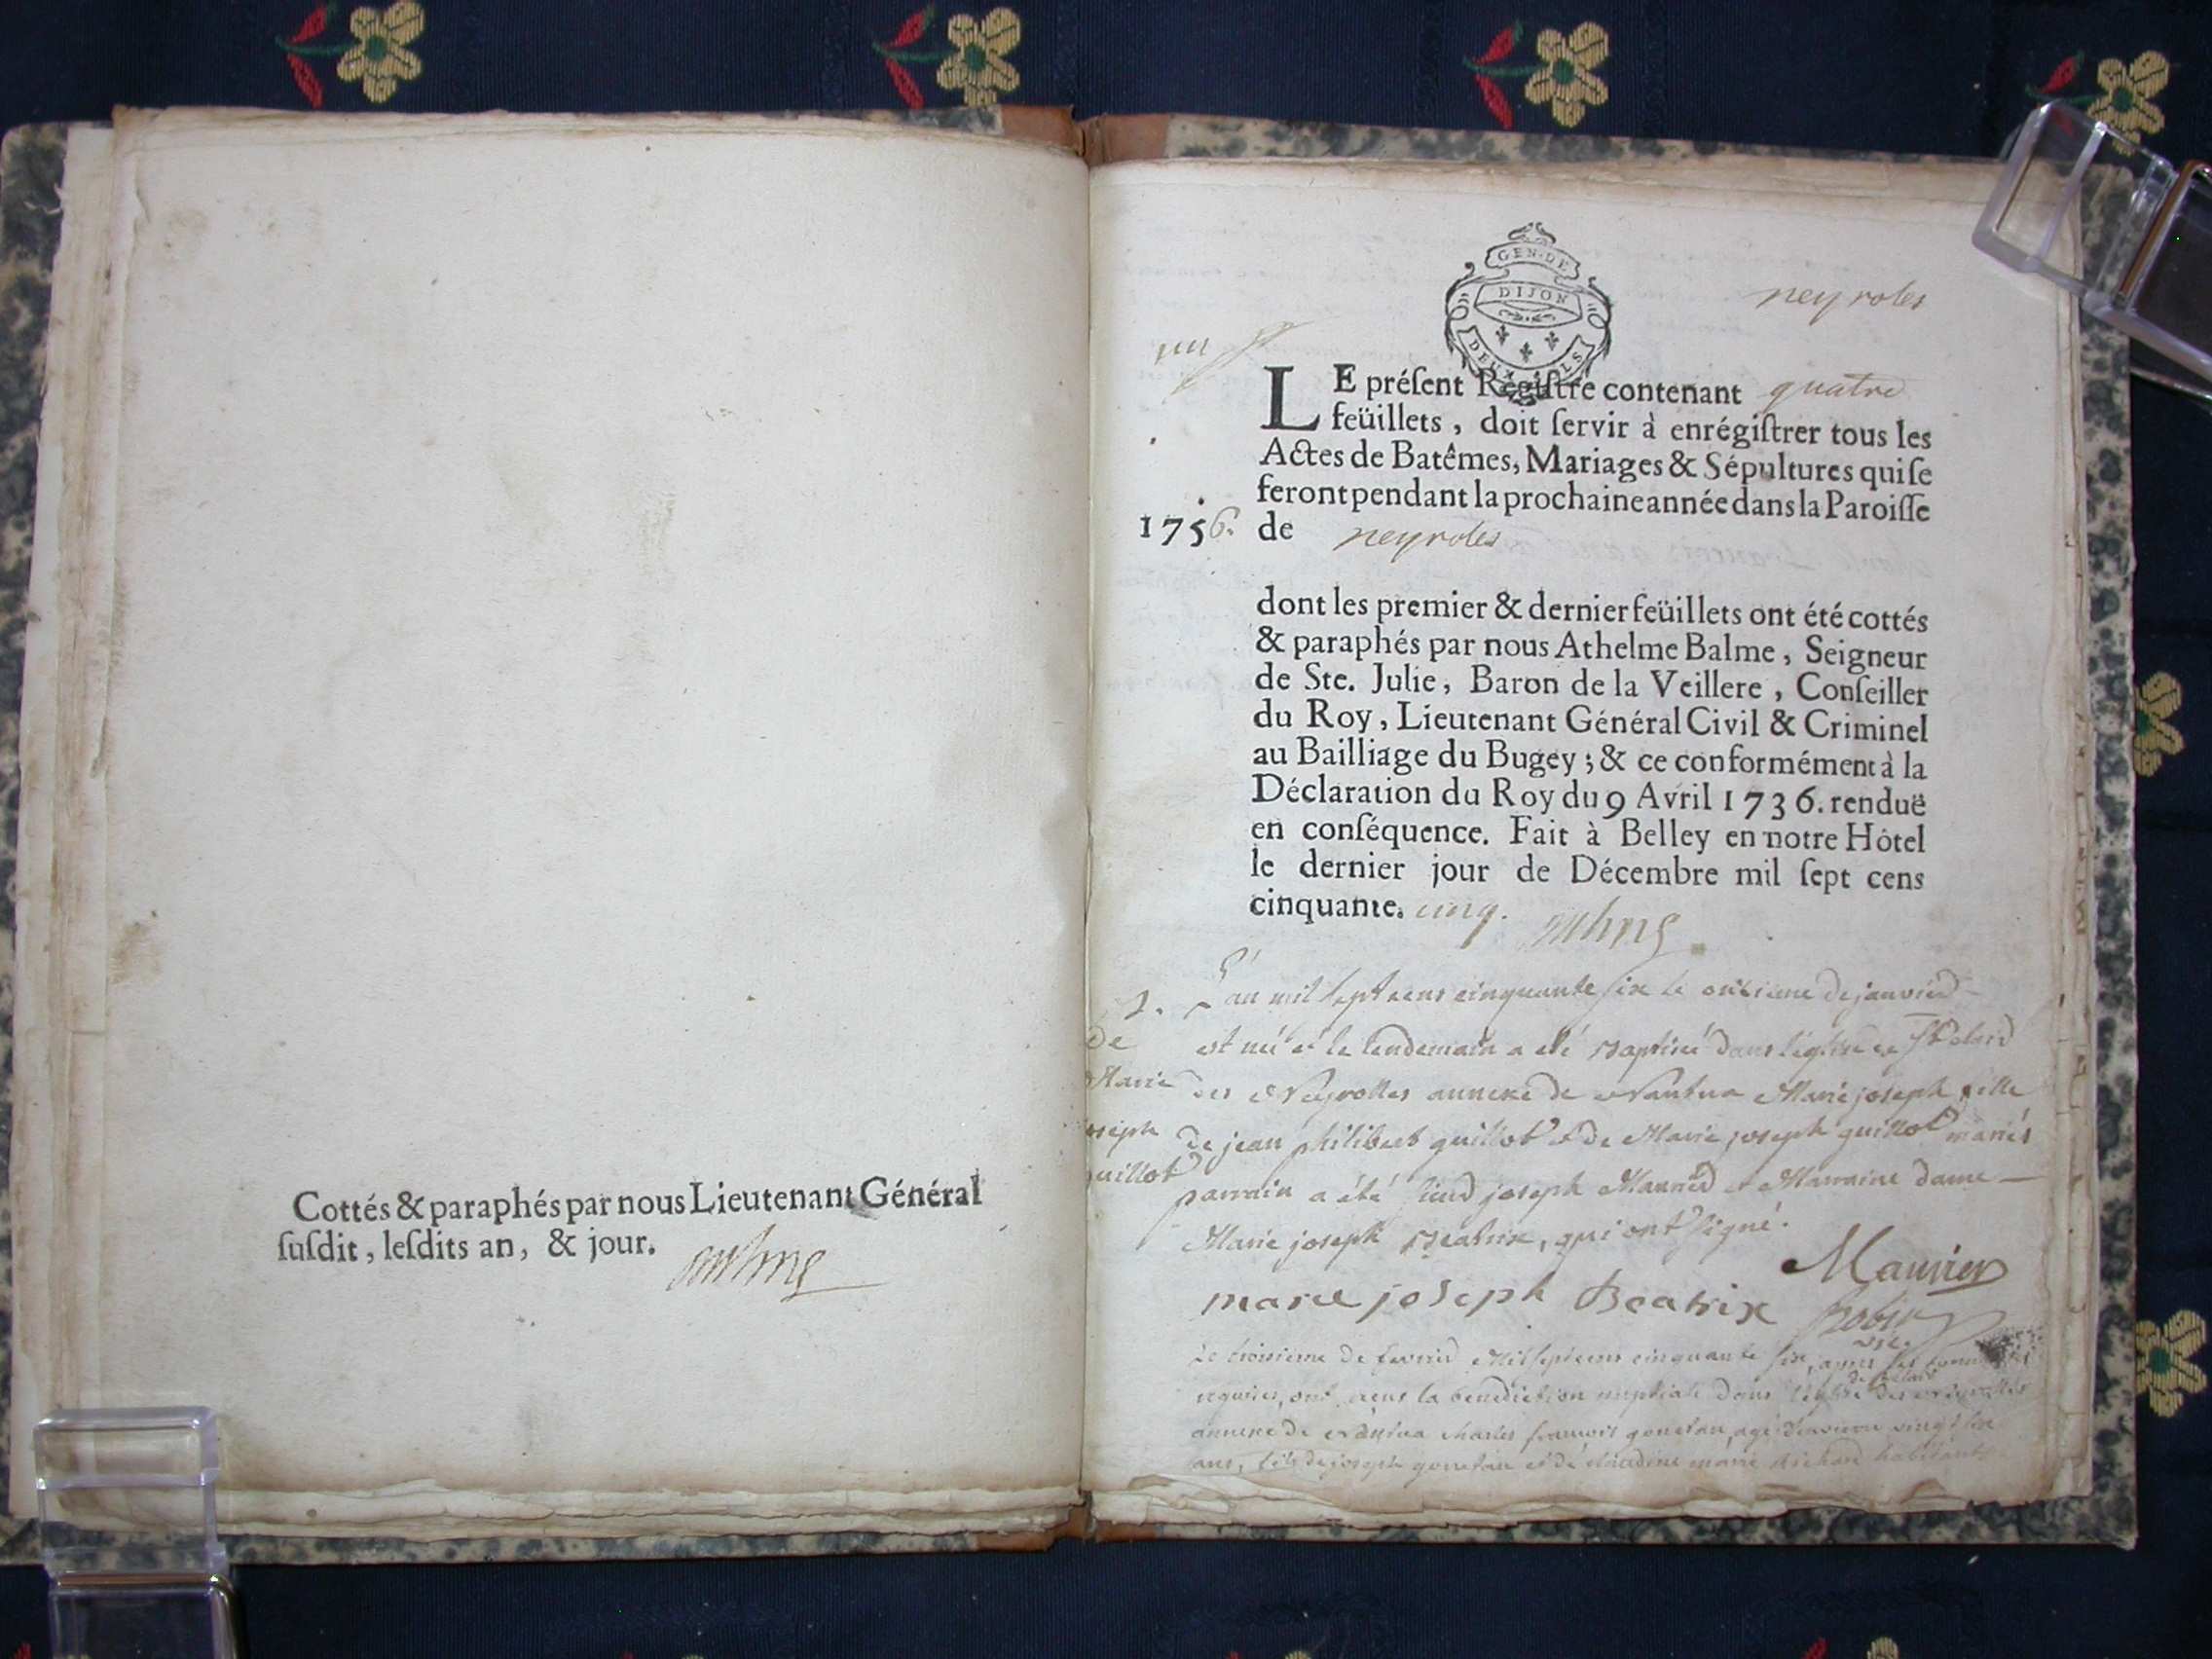 Cottés & paraphés par nous Lieutenant Général
ſuſdit, leſdits an, & jour.
GEN. DE
DIJON
neyroles
un
LE préſent Régiſtre contenant quatre
feüillets, doit ſervir à enrégiſtrer tous les
Actes de Batêmes, Mariages & Sépultures qui ſe
feront pendant la prochaine année dans la Paroiſſe
1756. de neyroles
dont les premier & dernier feüillets ont été cottés
& paraphés par nous Athelme Balme, Seigneur
de Ste. Julie, Baron de la Veillere, Conſeiller
du Roy, Lieutenant Général Civil & Criminel
au Bailliage du Bugey; & ce conformément à la
Déclaration du Roy du 9 Avril 1736. renduë
en conſéquence. Fait à Belley en notre Hôtel
le dernier jour de Décembre mil ſept cens
cinquante. cinq.
L'an mil sept cens cinquante six le onzieme de janvier
est née et le lendemain a été baptisée dans l'église de
des Neyrolles annexe de Nantua Marie joseph fille
de jean philibert guillot et de Marie joseph guillot mariés
parrain a été sieur joseph Maurier et Marraine dame
Marie joseph Beatrix, qui ont signé.
de
Marie
joseph
guillot
Maurier
marie joseph Beatrix
Le troisieme de fevrier Mil sept cens cinquante six, apres les
requises, ont receus la benediction nuptiale dans l'église des Neyrolles
annexe de Nantua charles francois gonetan, agé d'environ vingt six
ans, fils de joseph gonetan et de claudine marie habitants